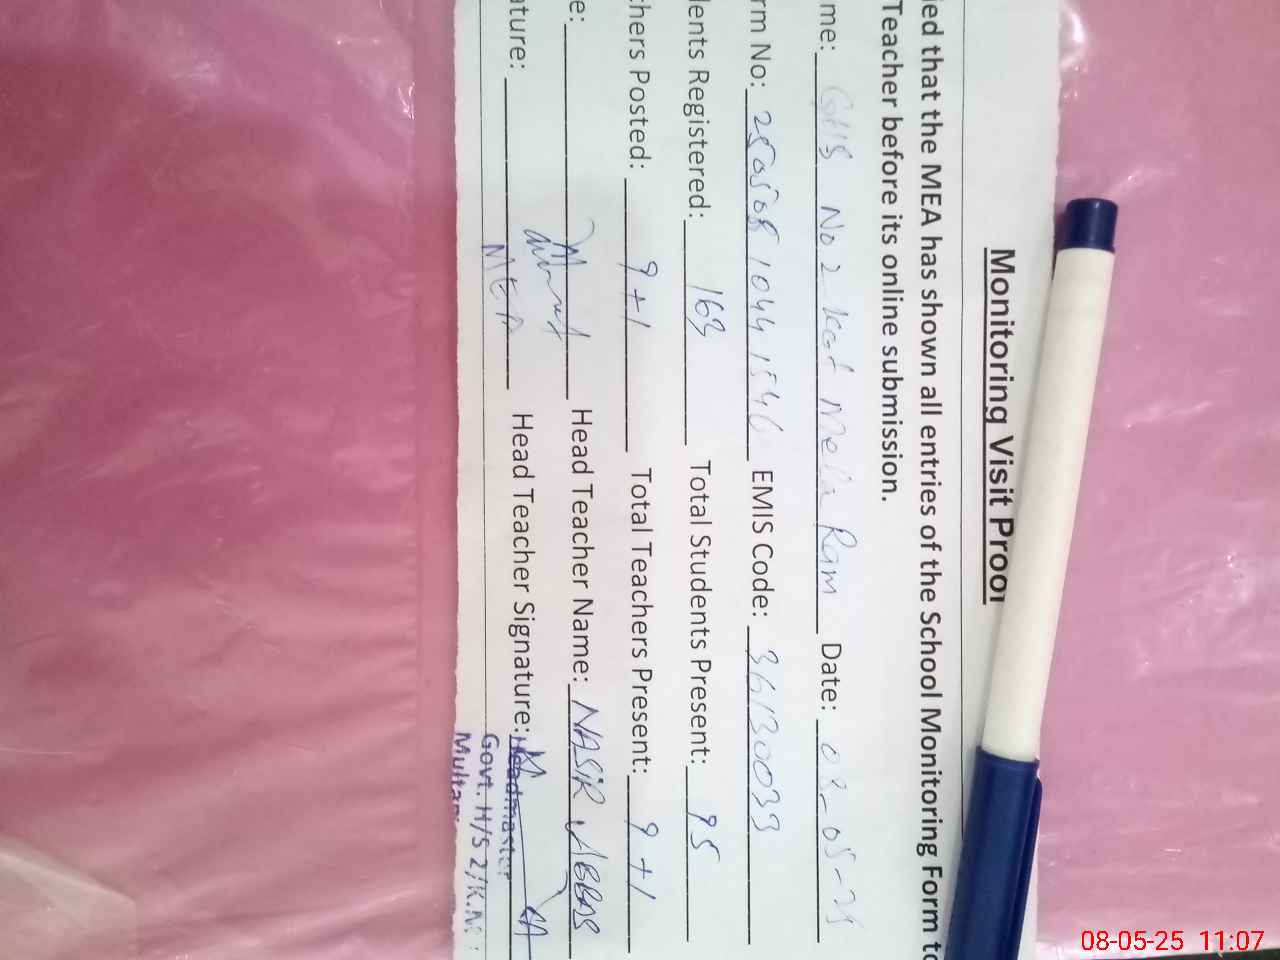 Monitoring Visit Proof
ied that the MEA has shown all entries of the School Monitoring Form to
Teacher before its online submission.
me: GHS No 2 Kot Mela Ram Date: 08-05-25
rm No: 25050810441546 EMIS Code: 36130033
dents Registered: 163 Total Students Present: 95
chers Posted: 9+1 Total Teachers Present: 9+1
e: Head Teacher Name: NASIR ABBAS
ature: Head Teacher Signature:
MEA
Headmaster
Govt. H/S 2/K.M
Multan
08-05-25 11:07